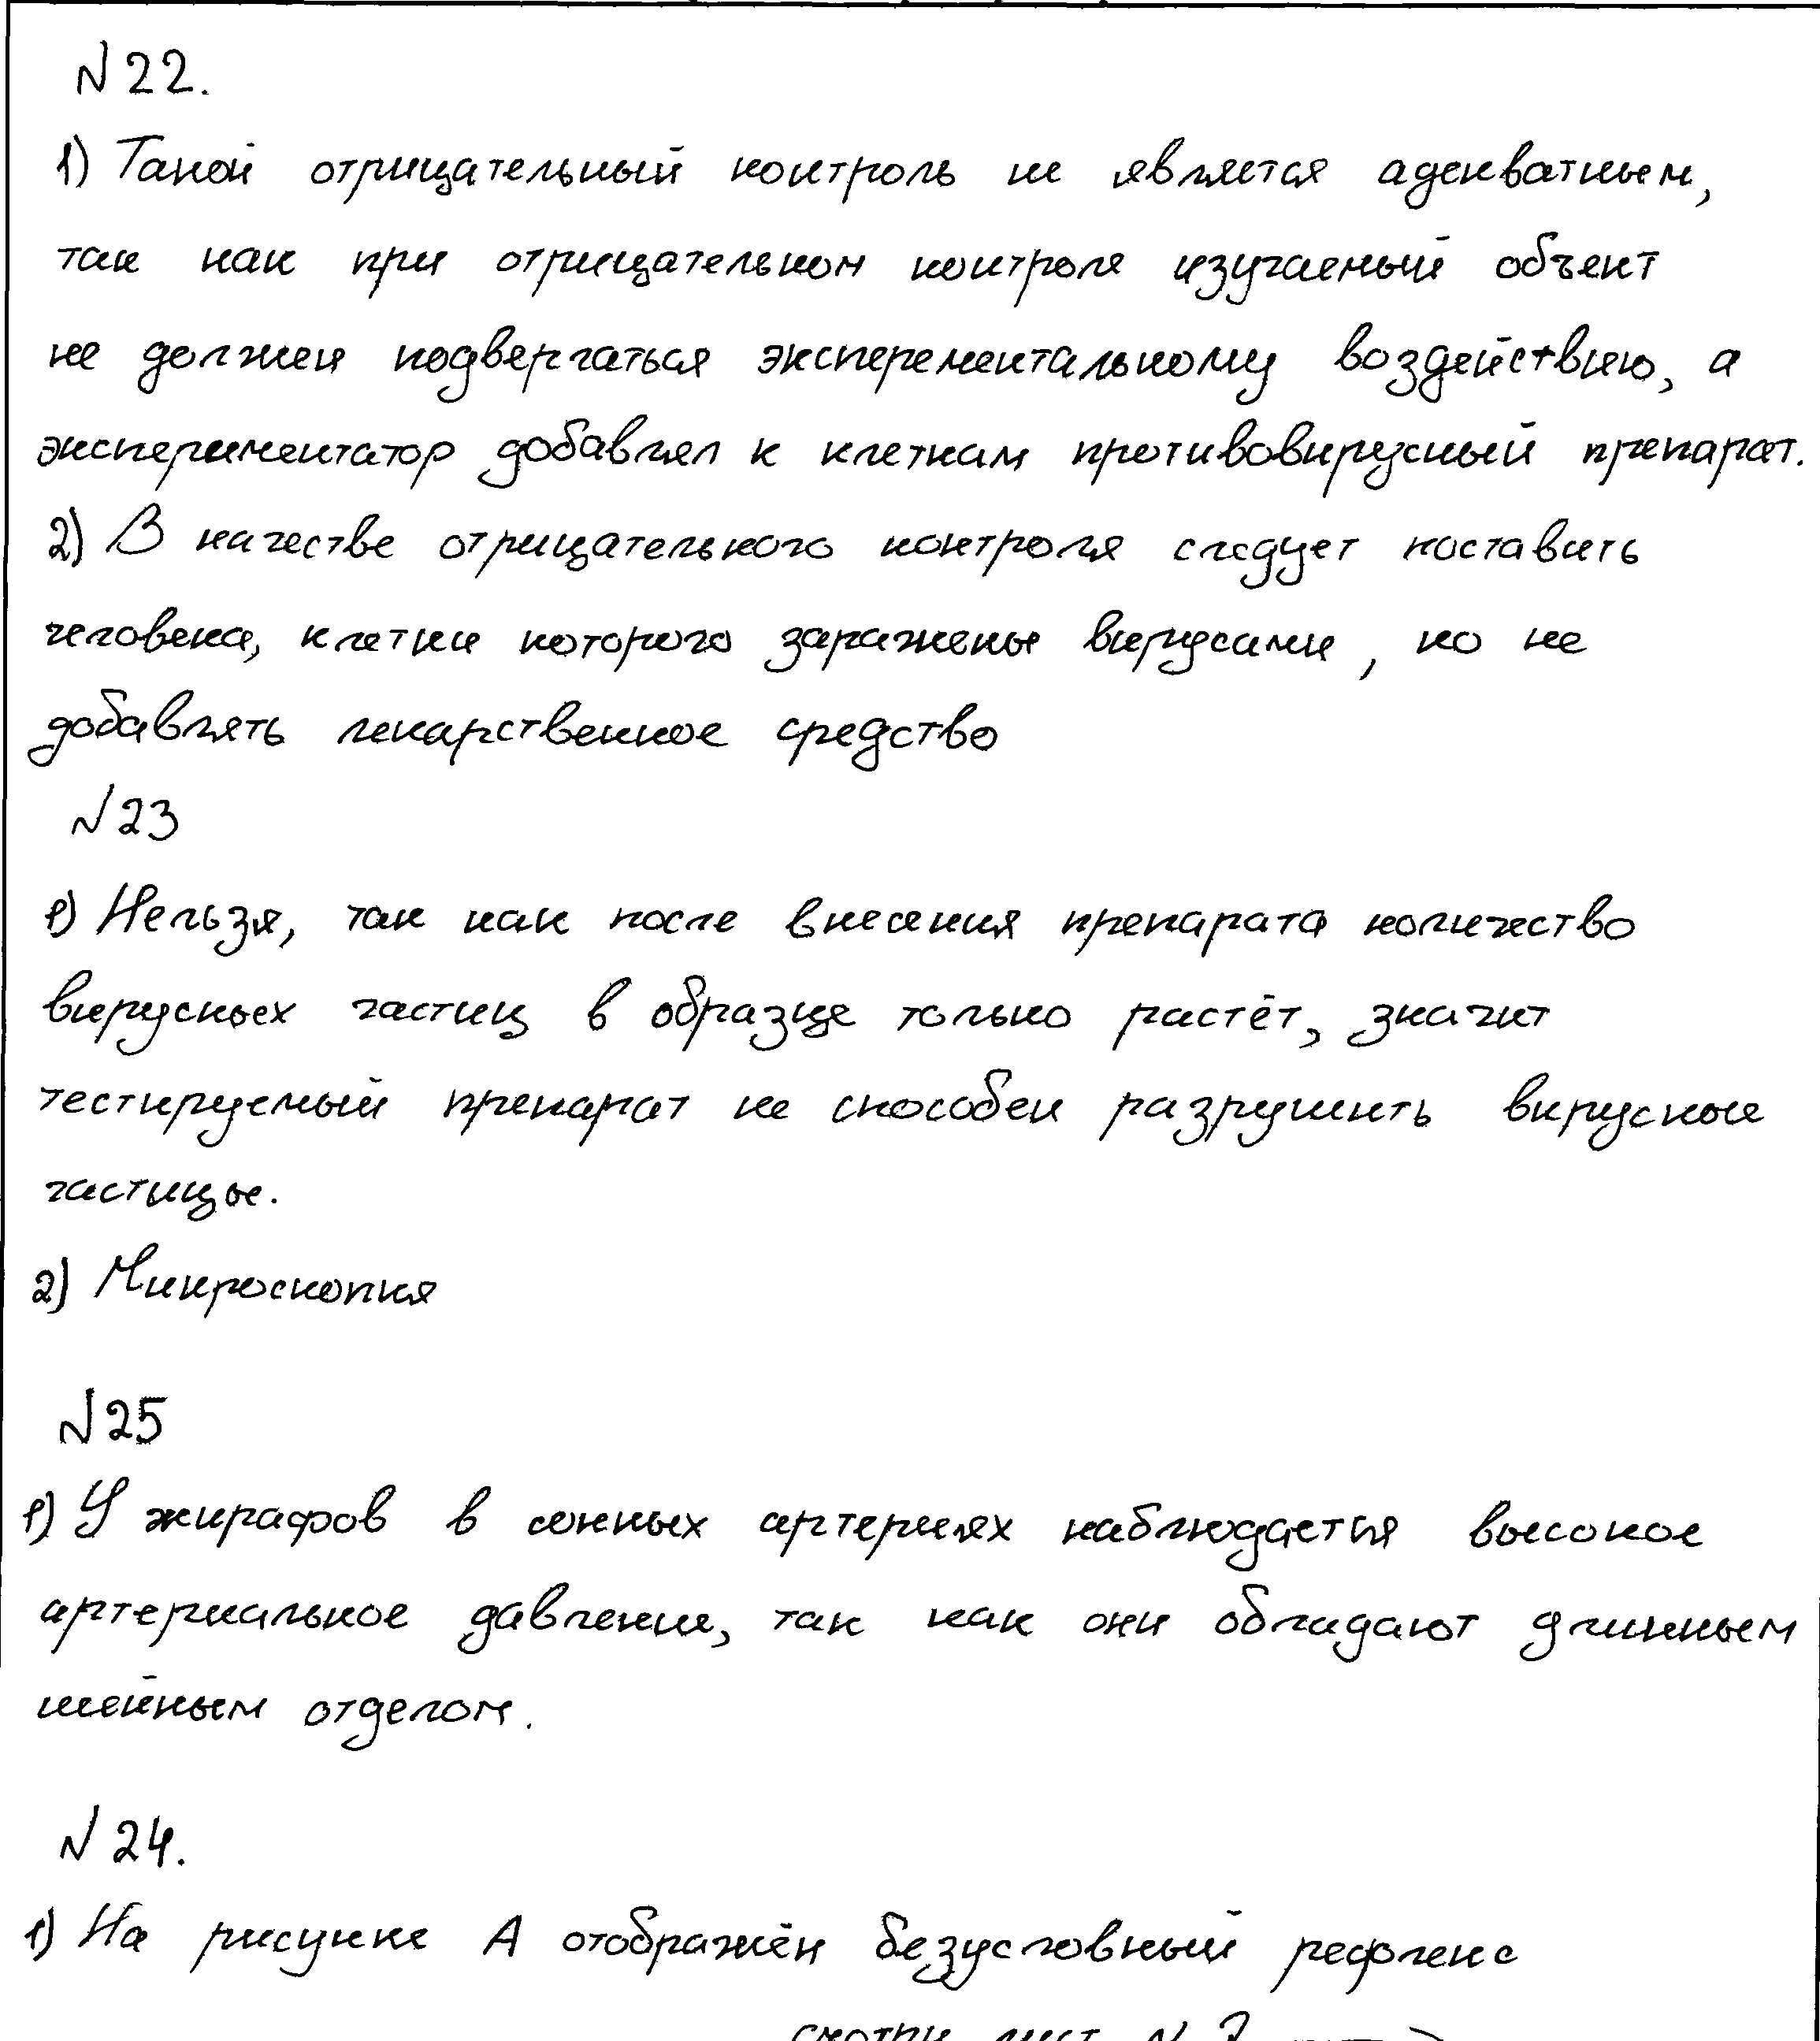 № 22.
1) Такой отрицательный контроль не является адекватным,
так как при отрицательном контроле изучаемый объект
не должен подвергаться эксперементальному воздействию, а
экспериментатор добавлял к клеткам противовирусный препарат.
2) В качестве отрицательного контроля следует поставить
человека, клетки которого заражены вирусами, но не
добавлять лекарственное средство
№ 23
1) Нельзя, так как после внесения препарата количество
вирусных частиц в образце только растёт, значит
тестируемый препарат не способен разрушить вирусные
частицы.
2) Микроскопия
№ 25
1) У жирафов в сонных артериях наблюдается высокое
артериальное давление, так как они обладают длинным
шейным отделом.
№ 24.
1) На рисунке А отображён безусловный рефлекс
смотри лист №